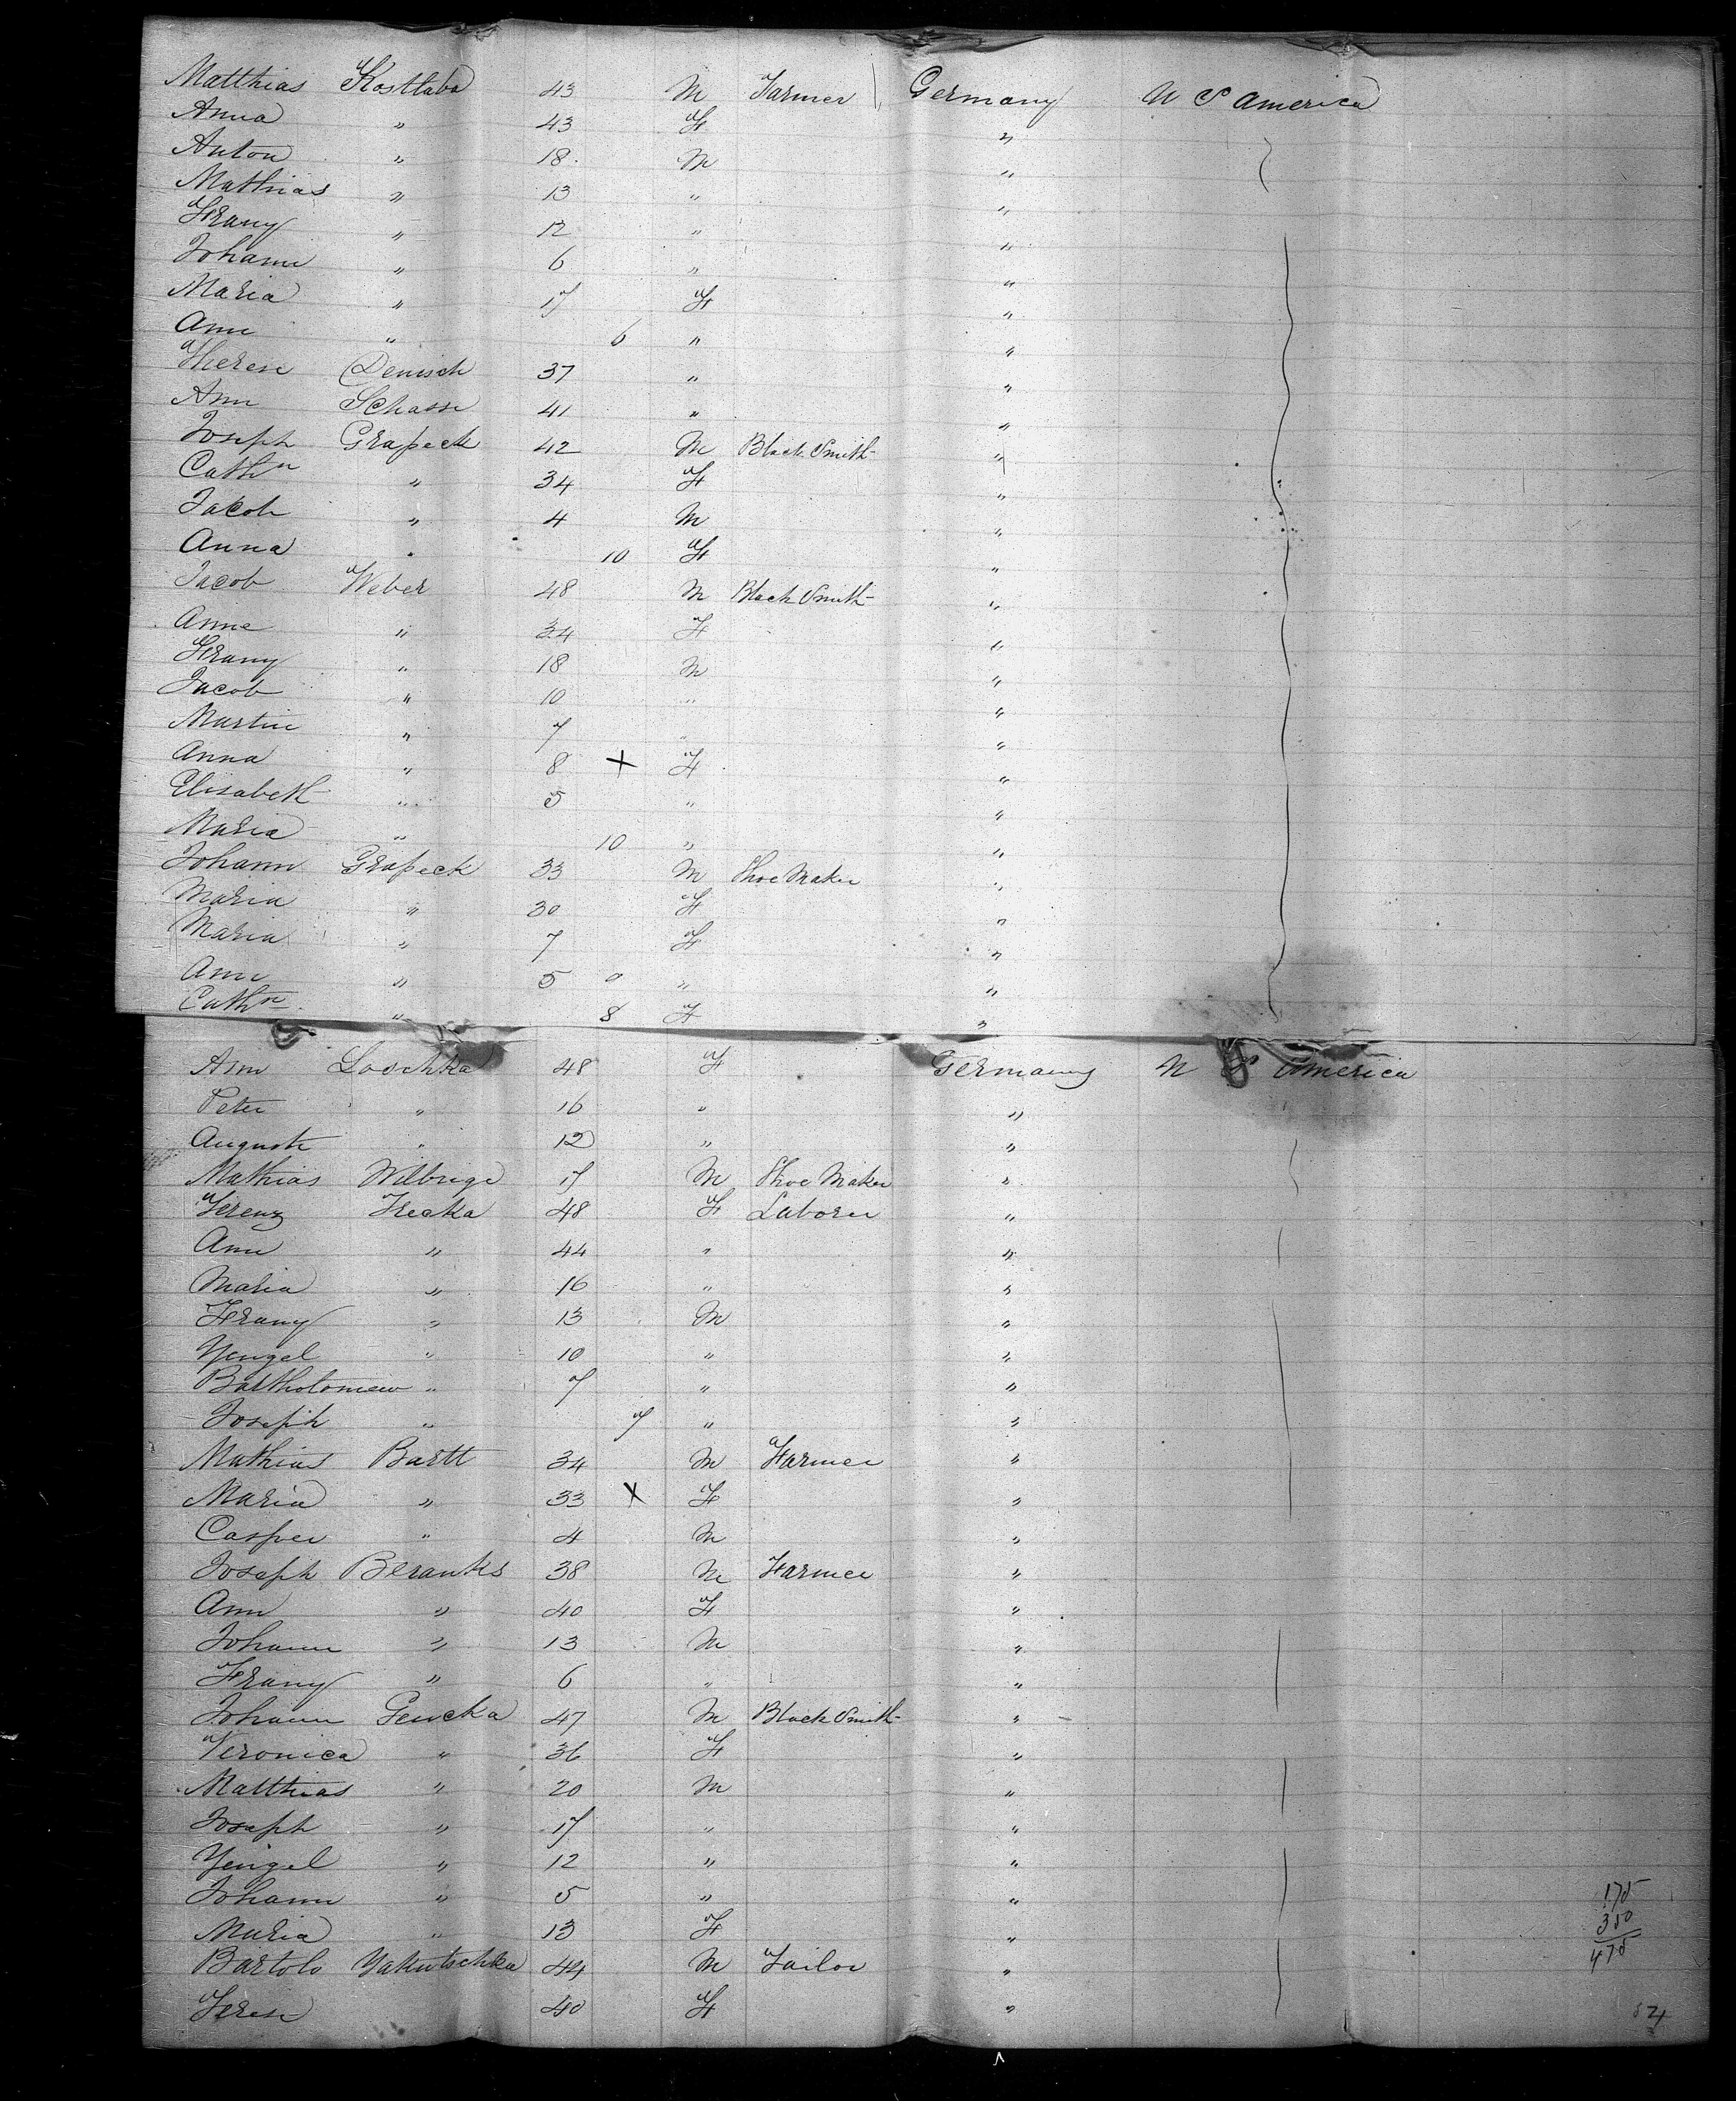 Matthias Kostlaba 43 M Farmer Germany U S America
Anna " 43 F "
Anton " 18 M "
Mathias " 13 " "
Franz " 12 " "
Johann " 6 " "
Maria " 17 F "
Ann " 6 " "
Therese Denisch 37 " "
Ann Schasse 41 " "
Joseph Grapeck 42 M Black Smith "
Cathn " 34 F "
Jacob " 4 M "
Anna " 10 F "
Jacob Weber 48 M Black Smith "
Anne " 34 F "
Franz " 18 M "
Jacob " 10 " "
Martin " 7 " "
Anna " 8 X F "
Elisabeth " 5 " "
Maria " 10 " "
Johann Grapeck 33 M Shoe Maker "
Maria " 30 F "
Maria " 7 F "
Ann " 5 " "
Cathn " 8 F "
Ann Loschka 48 F Germany U S America
Peter " 16 " "
Auguste " 12 " "
Mathias 17 M Shoe Maker "
Ferenz 48 F Laborer "
Ann " 44 " "
Maria " 16 " "
Franz " 13 M "
" 10 " "
Bartholomew " 7 " "
Joseph " 7 " "
Mathias Bartt 34 M Farmer "
Maria " 33 X F "
Casper " 4 M "
Joseph Beranks 38 M Farmer "
Ann " 40 F "
Johann " 13 M "
Franz " 6 " "
Johann Gencka 47 M Black Smith "
Veronica " 36 F "
Matthias " 20 M "
Joseph " 17 " "
" 12 " "
Johann " 5 " "
Maria " 13 F "
Bartolo Yakutschka 44 M Tailor "
Terese 40 F "
175
300
475